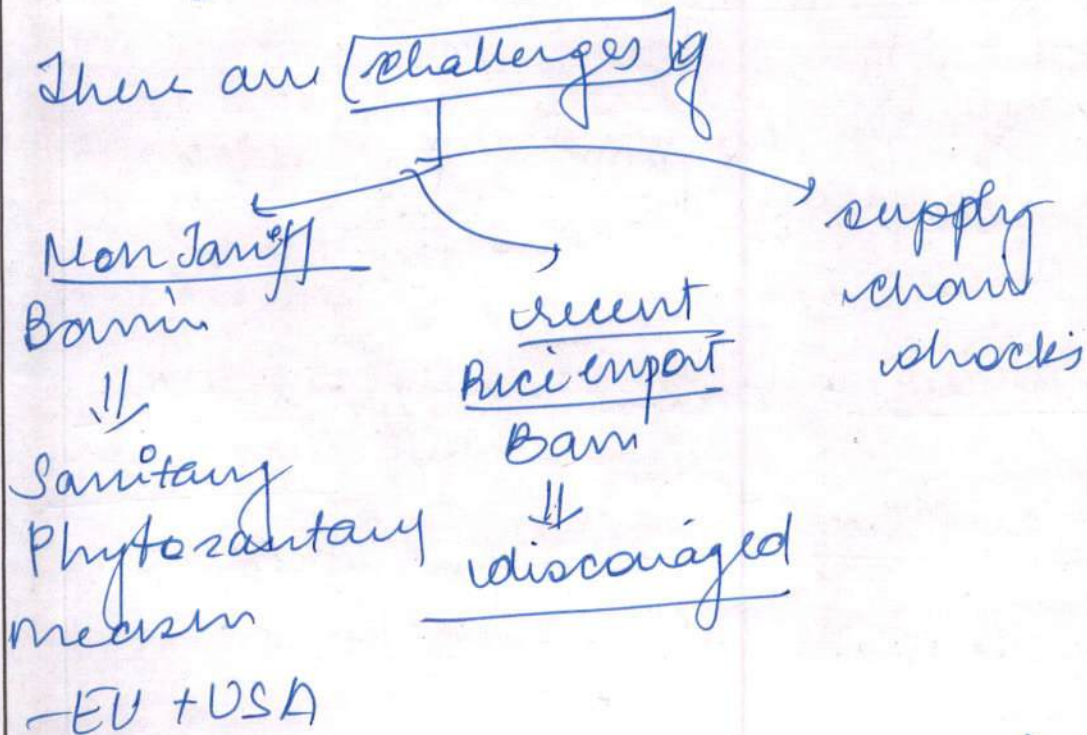 There are challenges of
Non Tariff
Barrier
Sanitary
Phytosanitary
measure
-EU + USA
recent
Rice export
Ban
discouraged
supply
chain
shocks